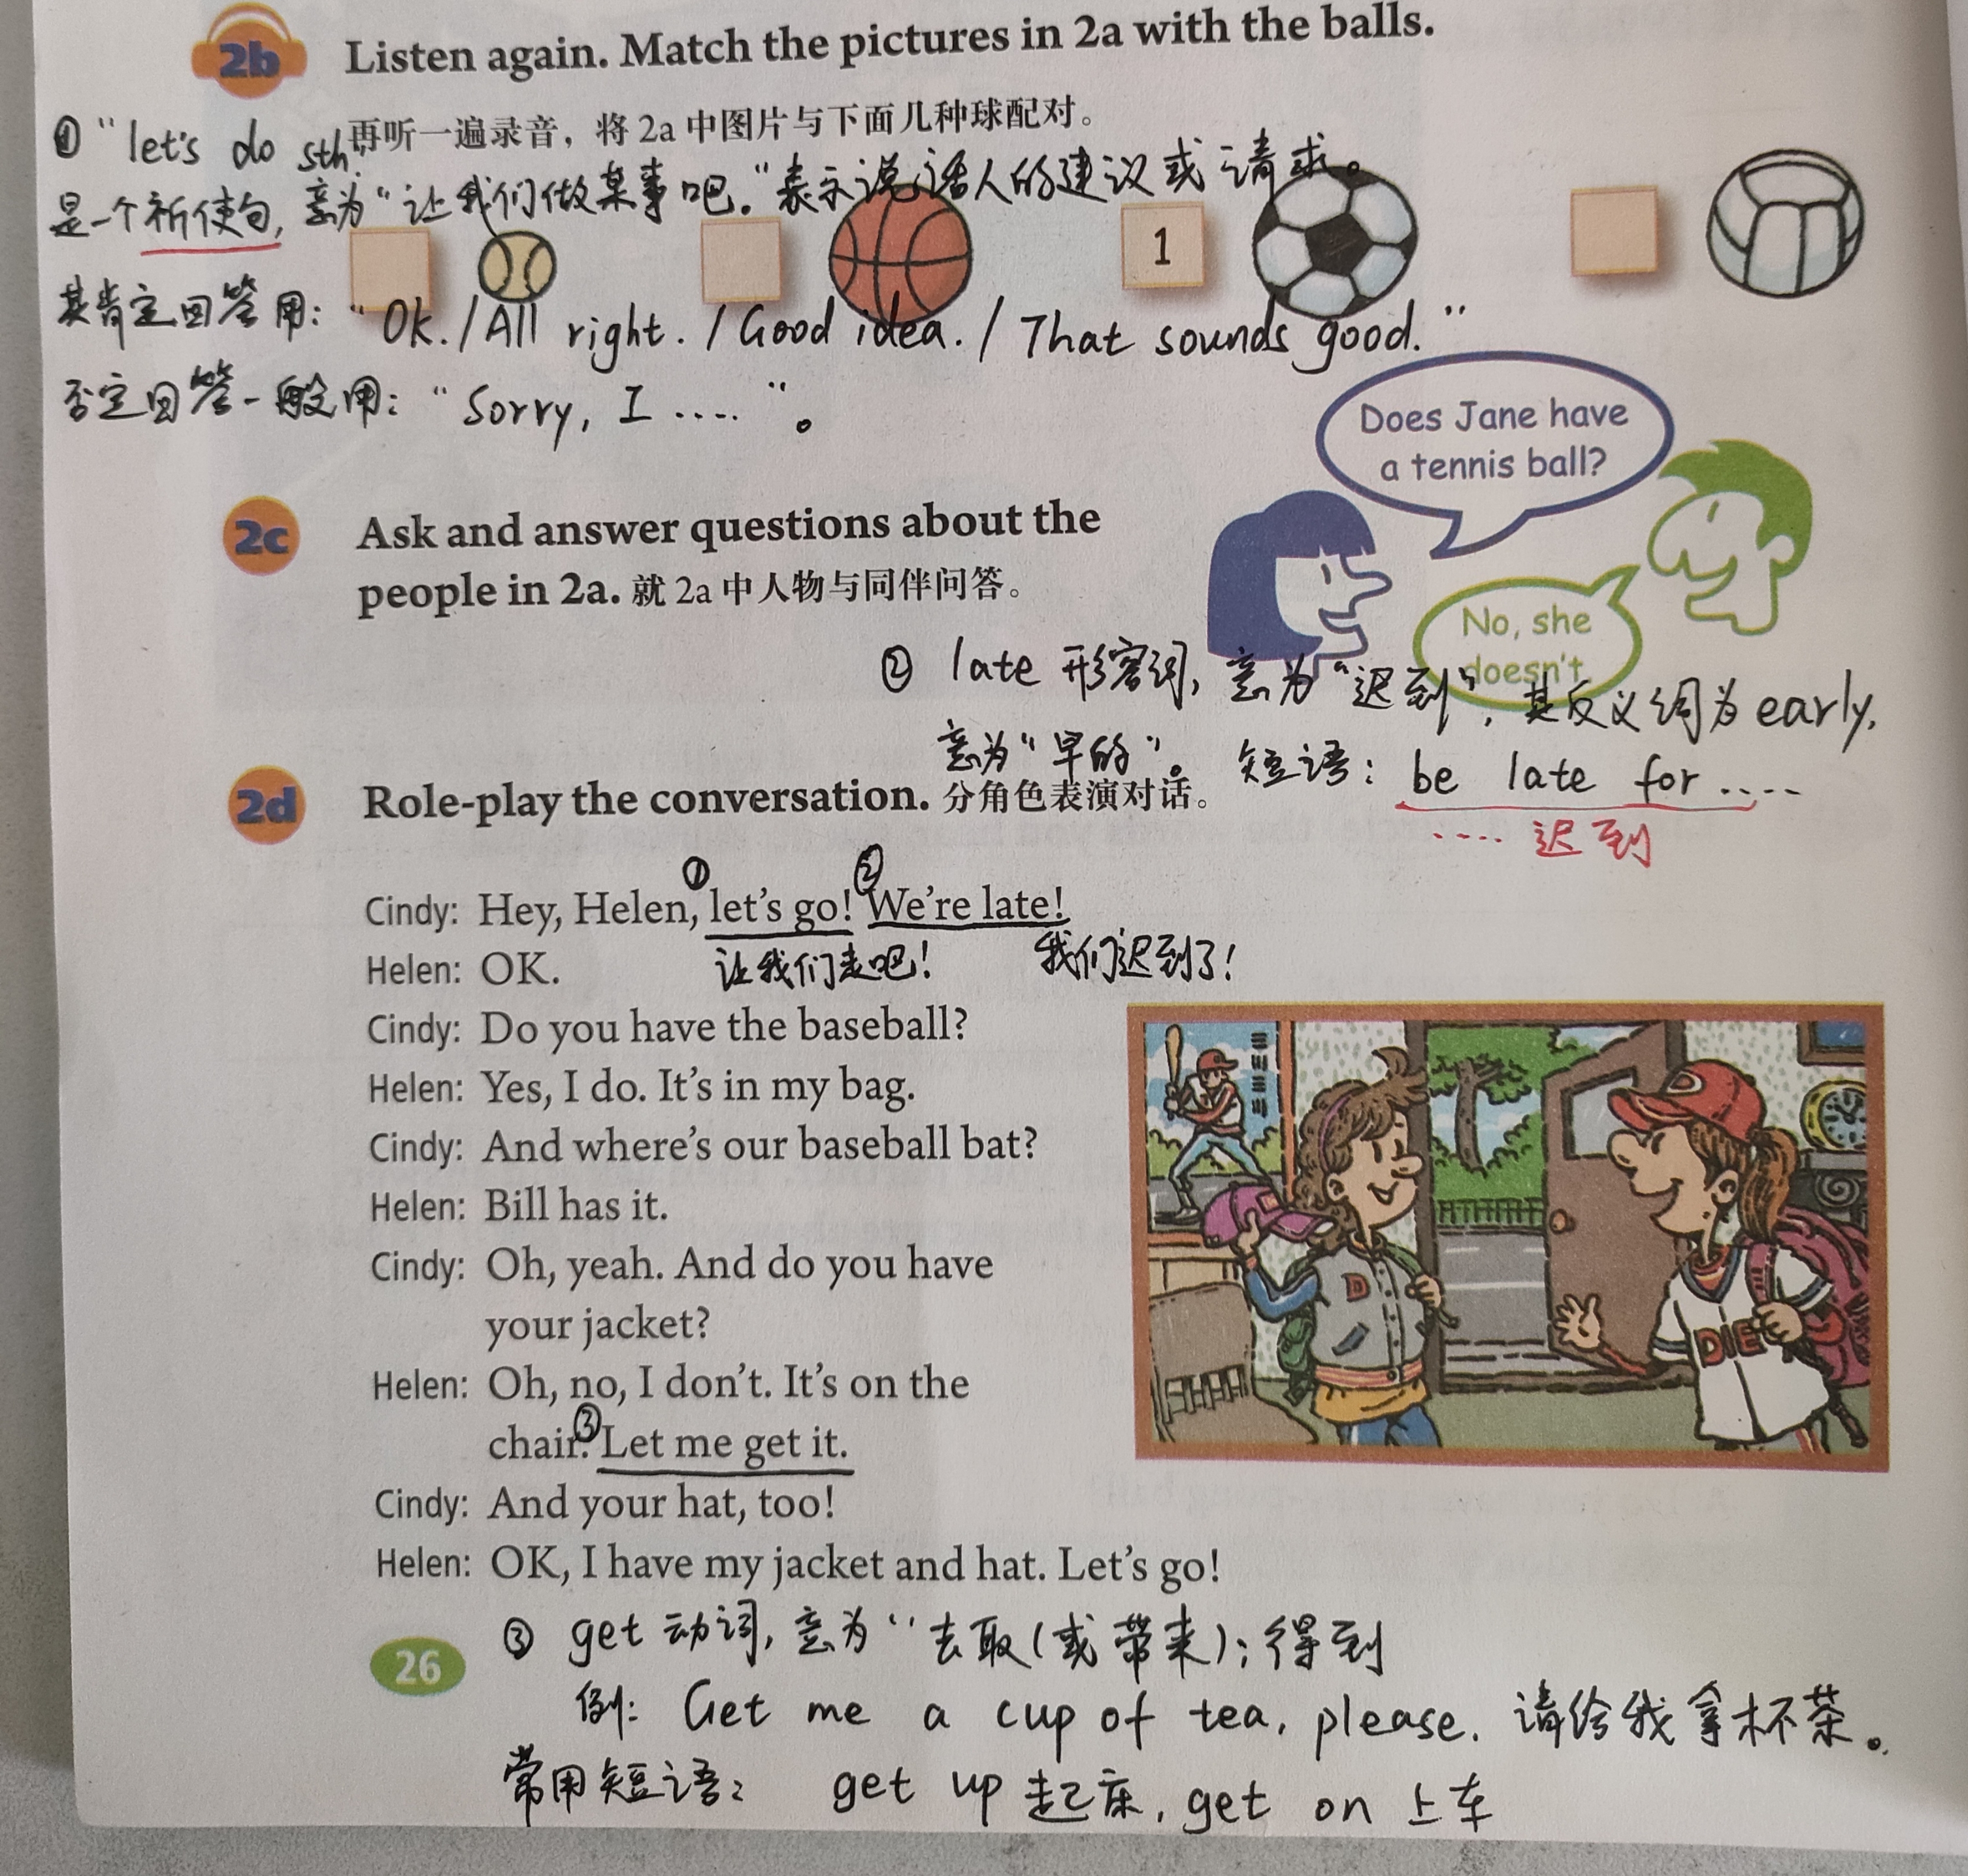 2b Listen again. Match the pictures in 2a with the balls.
再听一遍录音，将 2a 中图片与下面几种球配对。
① "let's do sth."
是一个祈使句，意为"让我们做某事吧."表示说话人的建议或请求。
1
其肯定回答用："Ok./All right./Good idea./That sounds good."
否定回答一般用："Sorry, I ....."。
Does Jane have
a tennis ball?
2c Ask and answer questions about the
people in 2a. 就 2a 中人物与同伴问答。
No, she
doesn't
② late 形容词，意为"迟到"，其反义词为 early,
意为"早的"。 短语：be late for .....
..... 迟到
2d Role-play the conversation. 分角色表演对话。
① ②
Cindy: Hey, Helen, let's go! We're late!
Helen: OK. 让我们走吧！ 我们迟到了！
Cindy: Do you have the baseball?
Helen: Yes, I do. It's in my bag.
Cindy: And where's our baseball bat?
Helen: Bill has it.
Cindy: Oh, yeah. And do you have
your jacket?
Helen: Oh, no, I don't. It's on the
chair. ③ Let me get it.
Cindy: And your hat, too!
Helen: OK, I have my jacket and hat. Let's go!
D
DIE
26
③ get 动词，意为"去取(或带来)；得到
例：Get me a cup of tea, please. 请给我拿杯茶。
常用短语： get up 起床，get on 上车